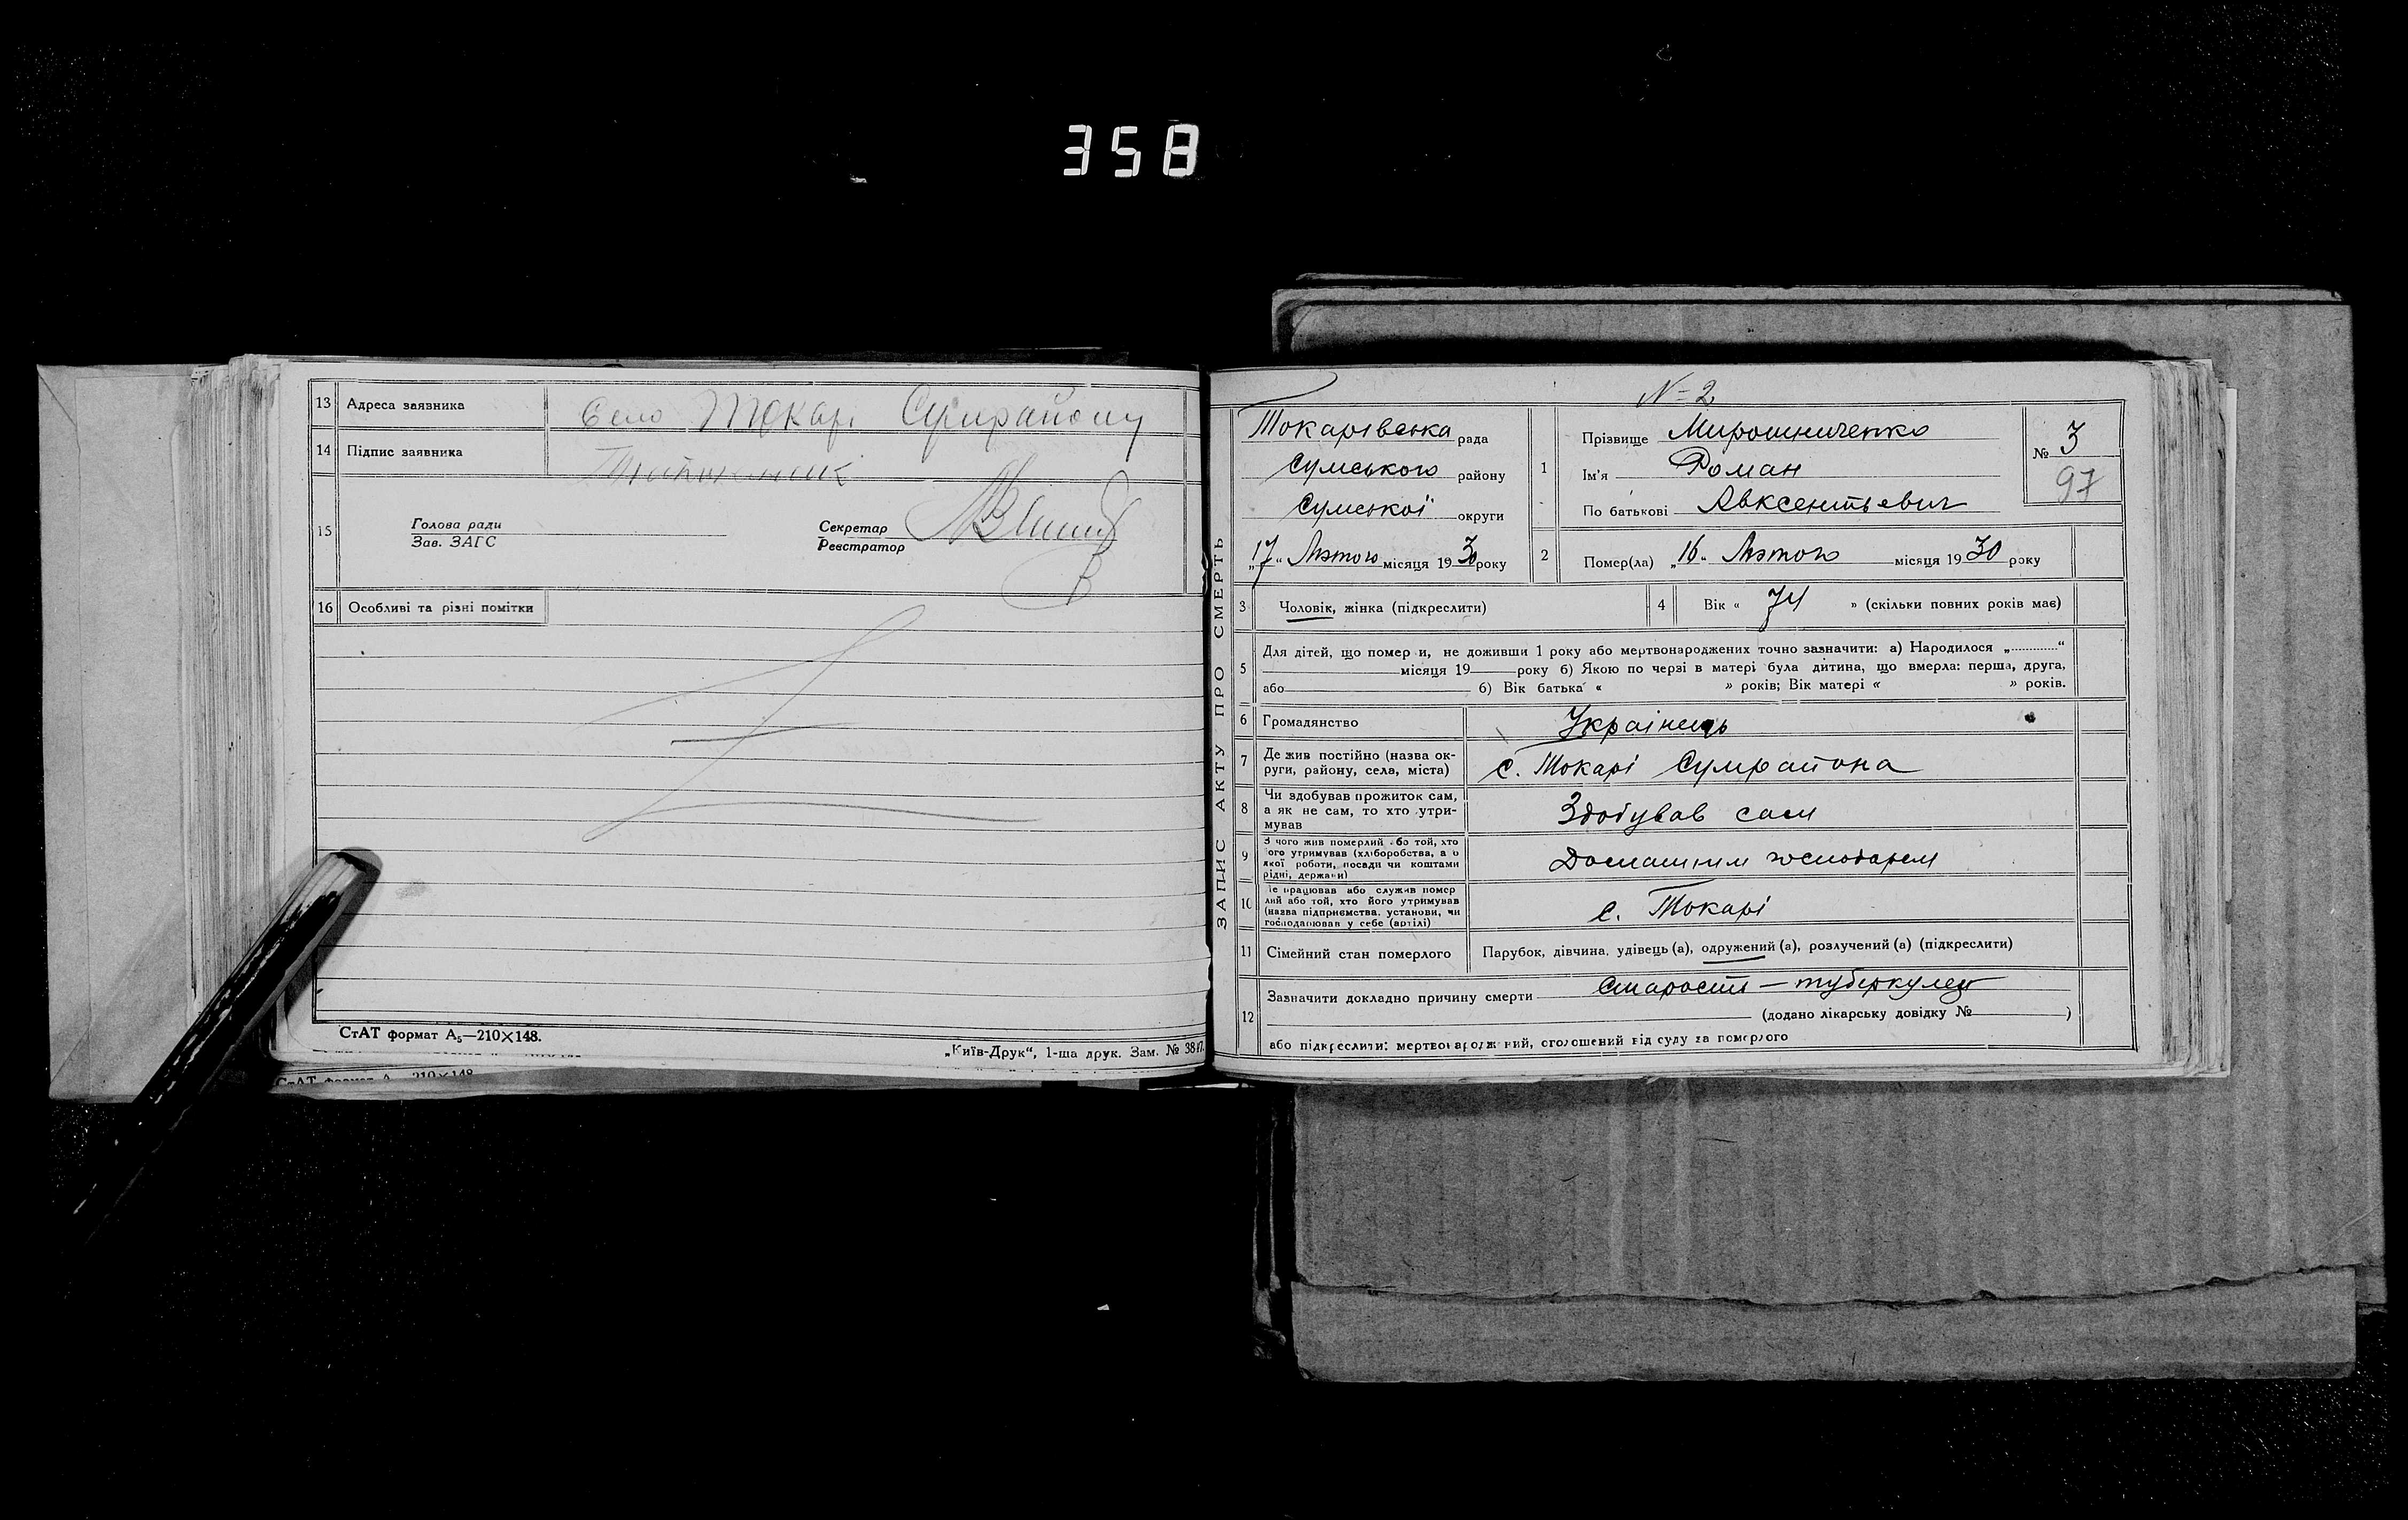 358
13 Адреса заявника Село Токарі Сумрайону
14 Підпис заявника
15 Голова ради
Зав. ЗАГС
Секретар
Реєстратор
16 Особливі та різні помітки
СтАТ формат А₅—210×148.
„Київ-Друк“, 1-ша друк. Зам. №
СтАТ формат А 210×148
ЗАПИС АКТУ ПРО СМЕРТЬ
N=2
Токарівська рада
Сумського району
Сумської округи
„17“ Лютого місяця 1930 року
1 Прізвище Мирошниченко
Ім'я Роман
По батькові Авксентьевич
№ 3
97
2 Помер(ла) „16“ Лютого місяця 1930 року
3 Чоловік, жінка (підкреслити)
4 Вік « 74 » (скільки повних років має)
5 Для дітей, що помер и, не доживши 1 року або мертвонароджених точно зазначити: а) Народилося „............“
місяця 19 року б) Якою по черзі в матері була дитина, що вмерла: перша, друга,
або б) Вік батька « » років; Вік матері « » років.
6 Громадянство Українець
7 Де жив постійно (назва ок-
руги, району, села, міста) с. Токарі Сумрайона
8 Чи здобував прожиток сам,
а як не сам, то хто утри-
мував Здобував сам
9 З чого жив померлий або той, хто
ого утримував (хліборобства, а о
якої роботи, посади чи коштами
рідні, держави) Домашним господарем
10 е працював або служив помер
лий або той, хто його утримував
(назва підприємства, установи, чи
господарював у себе (артілі) с. Токарі
11 Сімейний стан померлого Парубок, дівчина, удівець (а), одружений (а), розлучений (а) (підкреслити)
12 Зазначити докладно причину смерти Старость — туберкулез
(додано лікарську довідку № )
або підкреслити: мертвонароджений, оголошений від суду за померлого